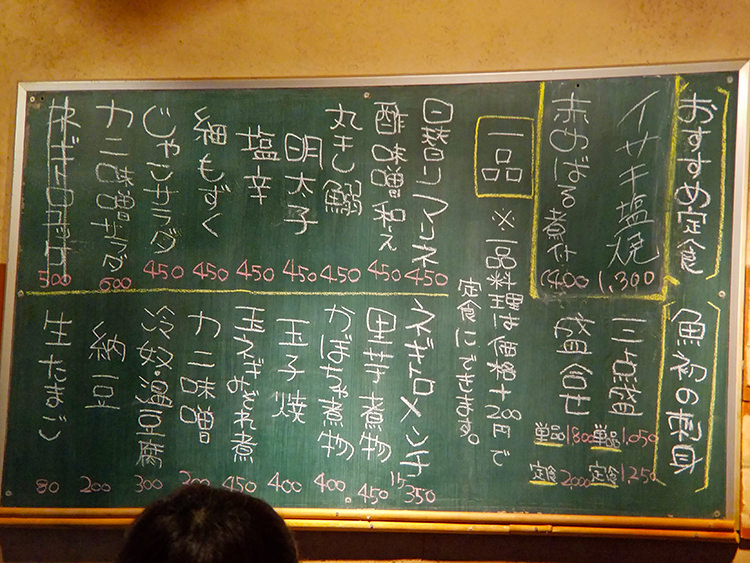 おすすめ定食
イサキ塩焼 1,300
赤めばる煮付 1400
魚初の刺身
三点盛 単品 1,050 定食 1,250
盛合せ 単品 1,800 定食 2,000
一品
※一品料理は価格+200円で
定食にできます。
日替りマリネ 450
酢味噌和え 450
丸干し鰯 450
明太子 450
塩辛 450
細もずく 450
じゃこサラダ 450
カニ味噌サラダ 600
ネギトロ 500
ネギトロメンチ 350
里芋煮物 450
かぼちゃ煮物 400
玉子焼 400
玉ねぎみぞれ煮 450
カニ味噌
冷奴・温豆腐 300
納豆 200
生たまご 80